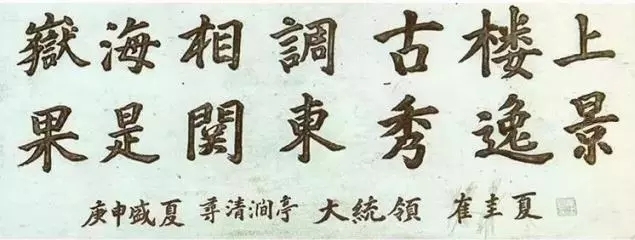 嶽海相調古楼上
果是関東秀逸景
庚申盛夏 尊清澗亭 大統領 崔圭夏